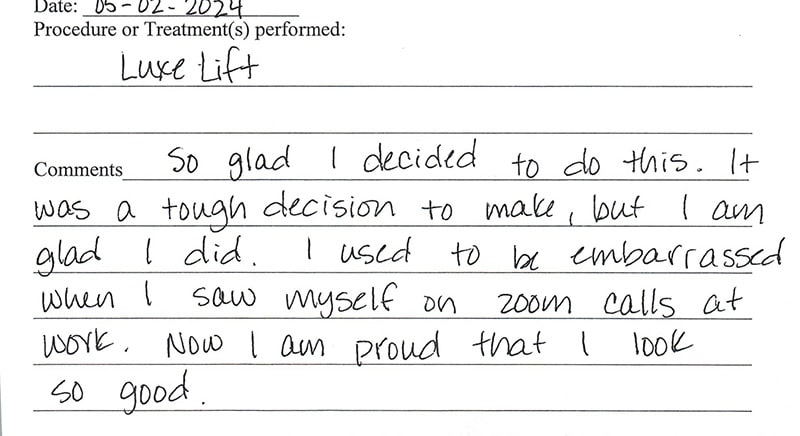 Date: 05-02-2024
Procedure or Treatment(s) performed:
Luxe Lift
Comments So glad I decided to do this. It
was a tough decision to make, but I am
glad I did. I used to be embarrassed
when I saw myself on zoom calls at
work. Now I am proud that I look
so good.